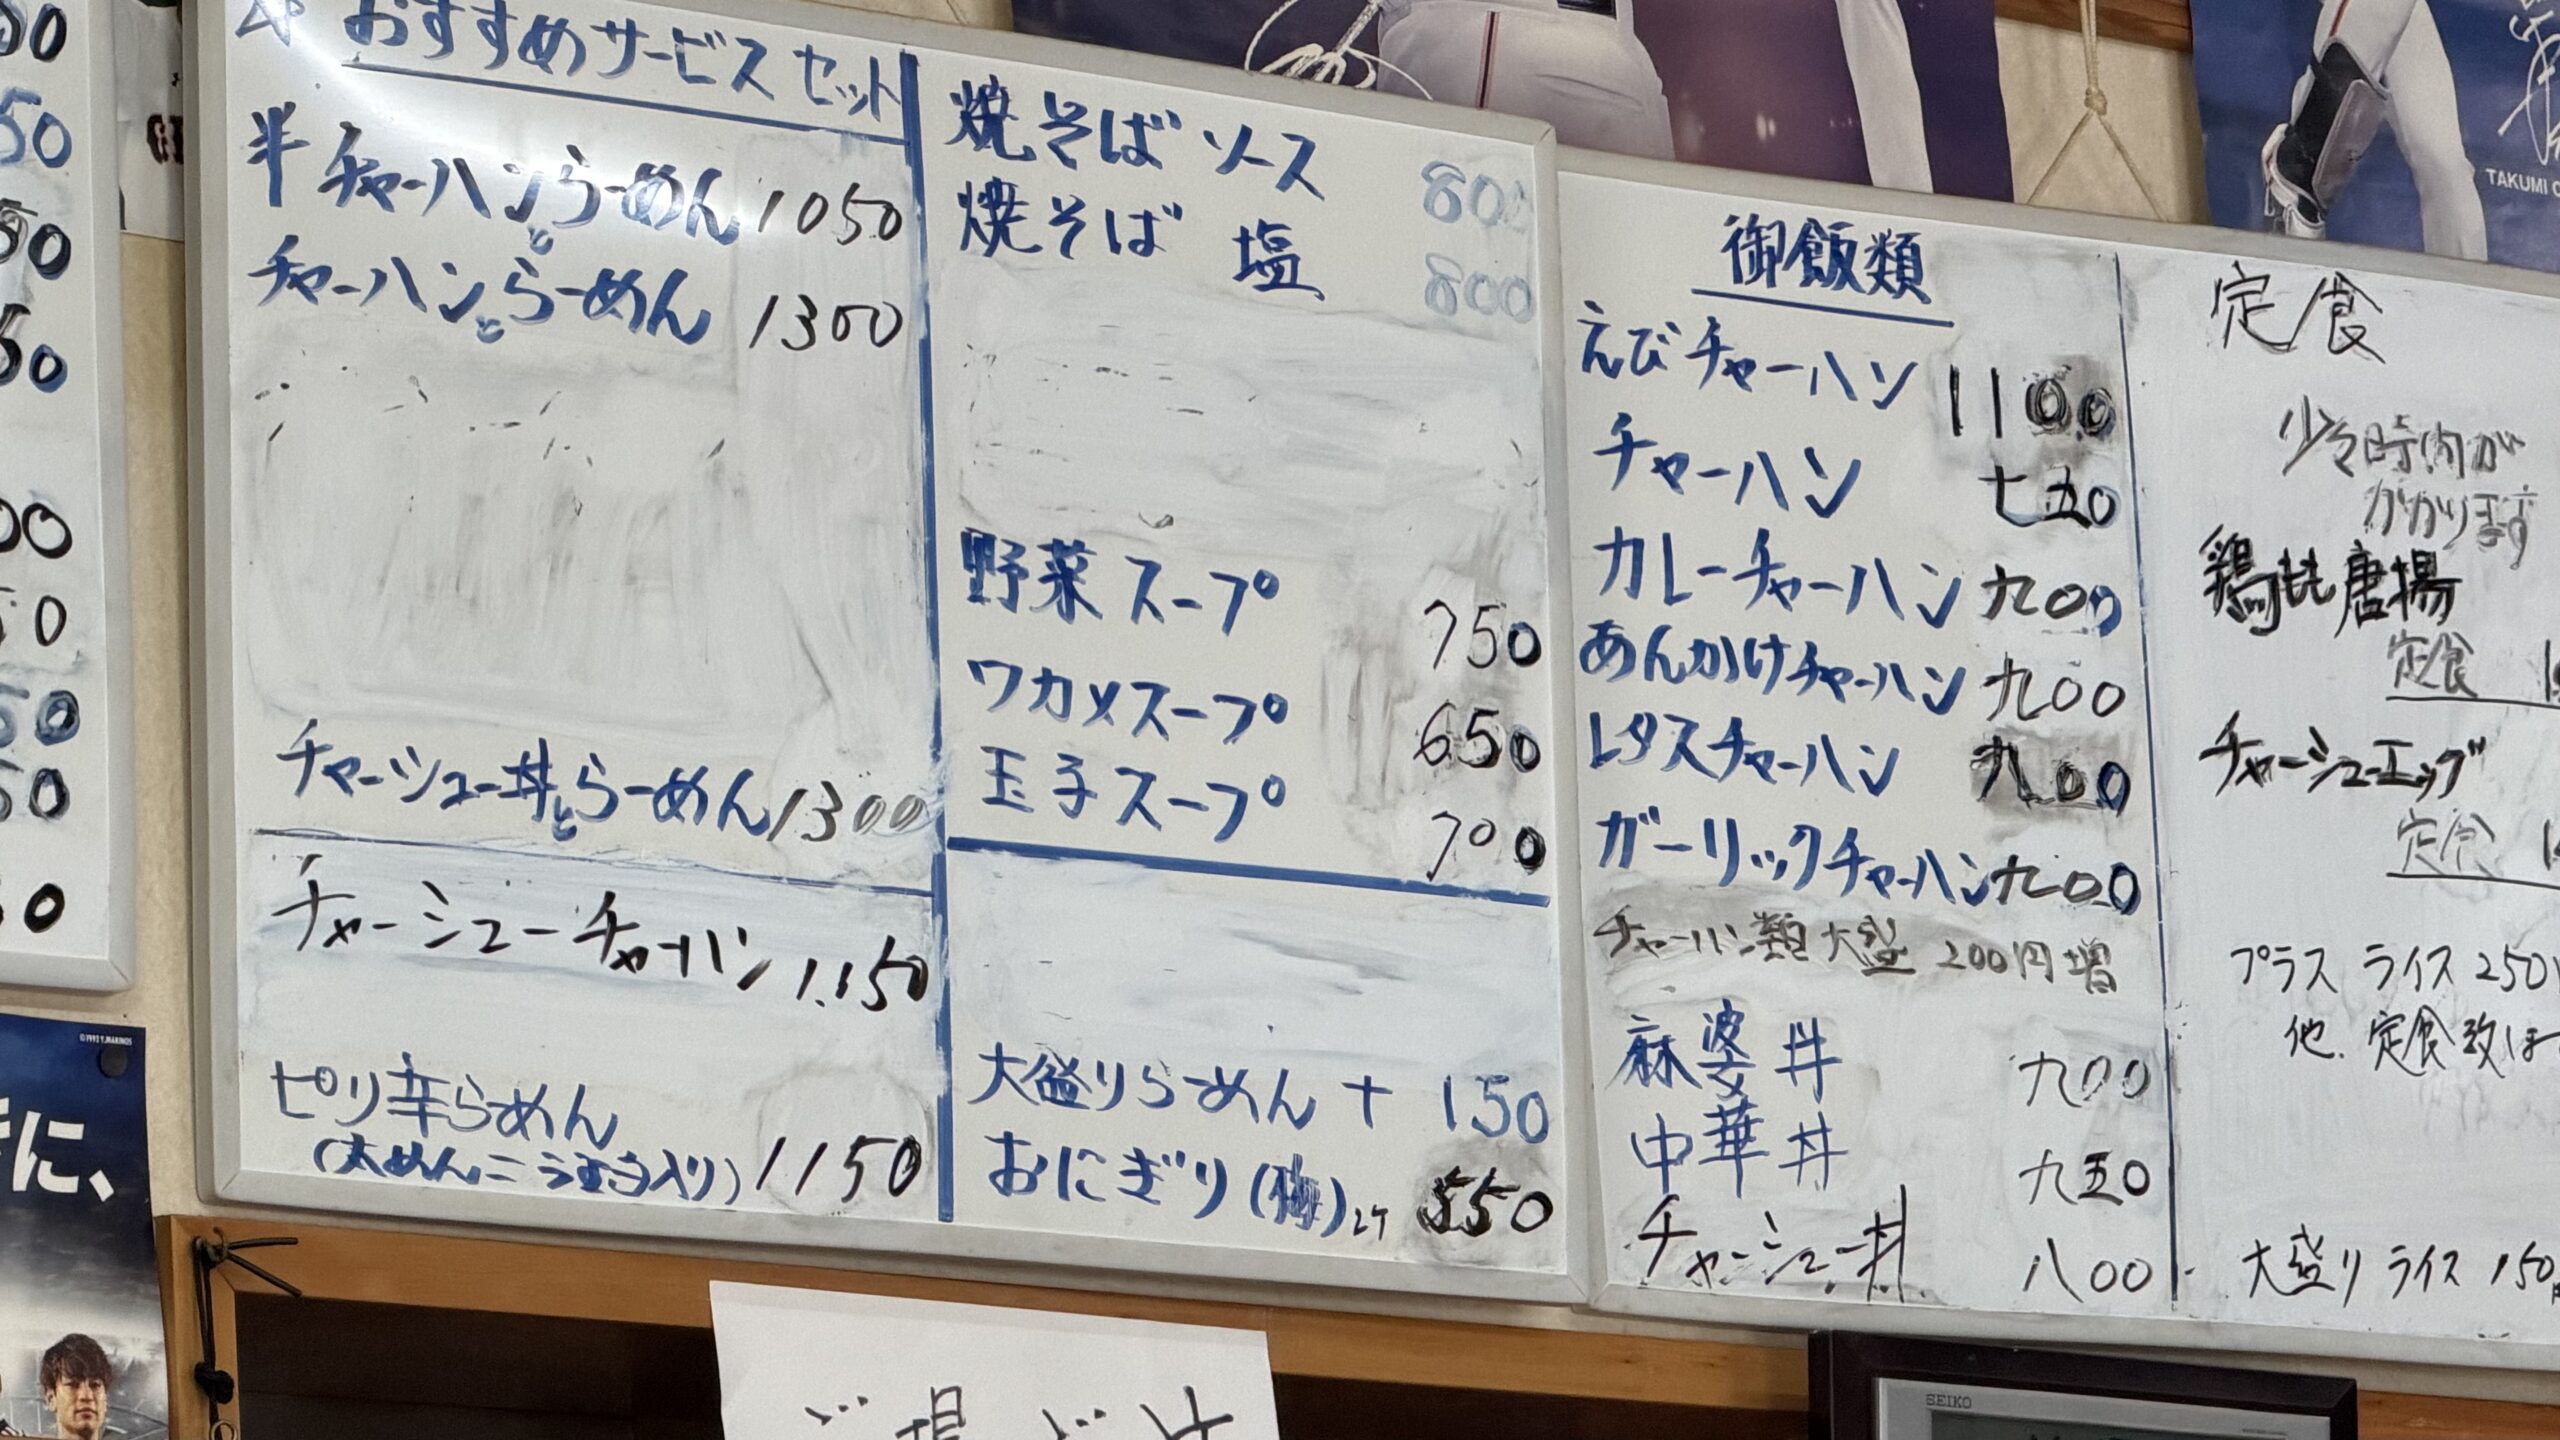 おすすめサービスセット
半チャーハンとらーめん 1050
チャーハンとらーめん 1300
チャーシュー丼とらーめん 1300
チャーシューチャーハン 1.150
ピリ辛らーめん
1150
焼そば ソース 800
焼そば 塩 800
野菜スープ 750
ワカメスープ 650
玉子スープ 700
大盛りらーめん + 150
おにぎり (梅) 2ケ 550
御飯類
えびチャーハン 1100
チャーハン 七五0
カレーチャーハン 九00
あんかけチャーハン 九00
レタスチャーハン 九00
ガーリックチャーハン 九00
チャーハン類大盛 200円増
麻婆丼 九00
中華丼 九五0
チャーシュー丼 八00
定食
少々時間が
かかります
鶏もも唐揚
定食
チャーシューエッグ
定食
プラス ライス 250
他.定食
大盛りライス 150
TAKUMI
SEIKO